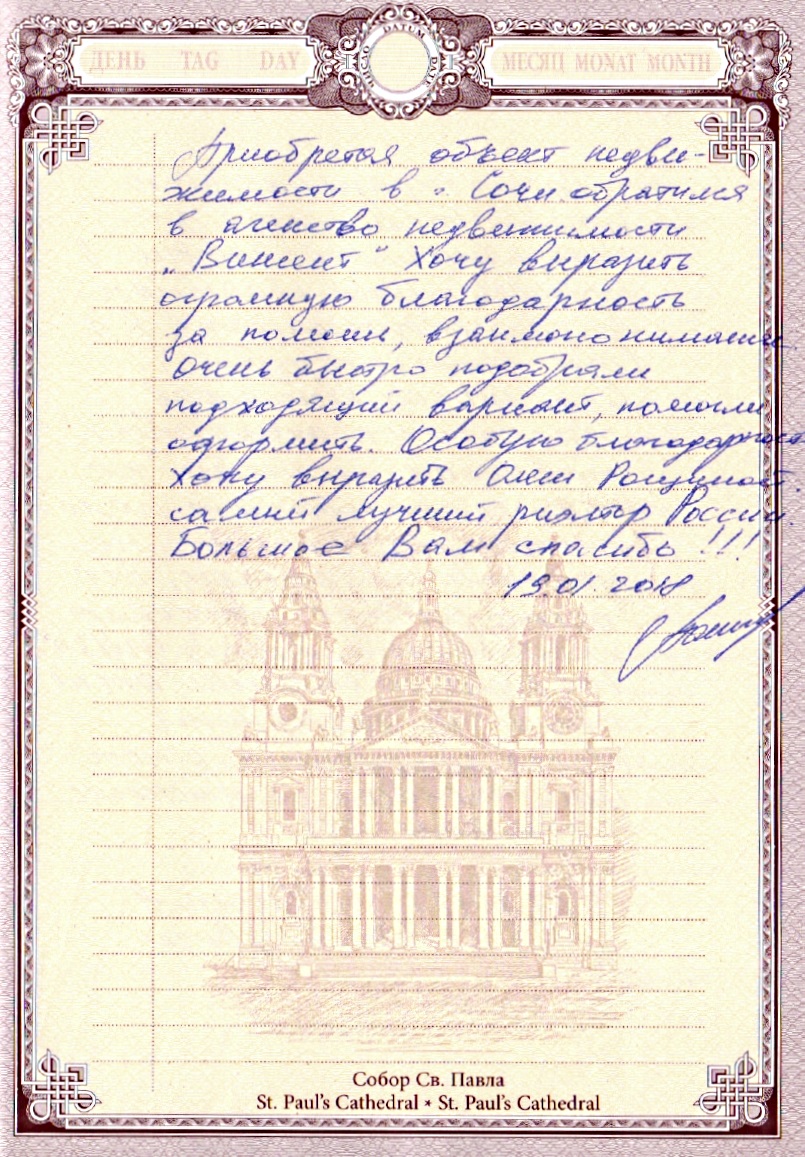 ДЕНЬ TAG DAY
ЧИСЛО DATUM DATE
МЕСЯЦ MONAT MONTH
Приобретая объект недви-
жимости в г. Сочи обратился
в агенство недвижимости
„Винсент“ Хочу выразить
огромную благодарность
за помощь, взаимопонимание.
Очень быстро подобрали
подходящий вариант, помогли
оформить. Особую благодарность
хочу выразить Олегу
самый лучший риэлтор России.
Большое Вам спасибо !!!
19.01.2018
Собор Св. Павла
St. Paul's Cathedral * St. Paul's Cathedral